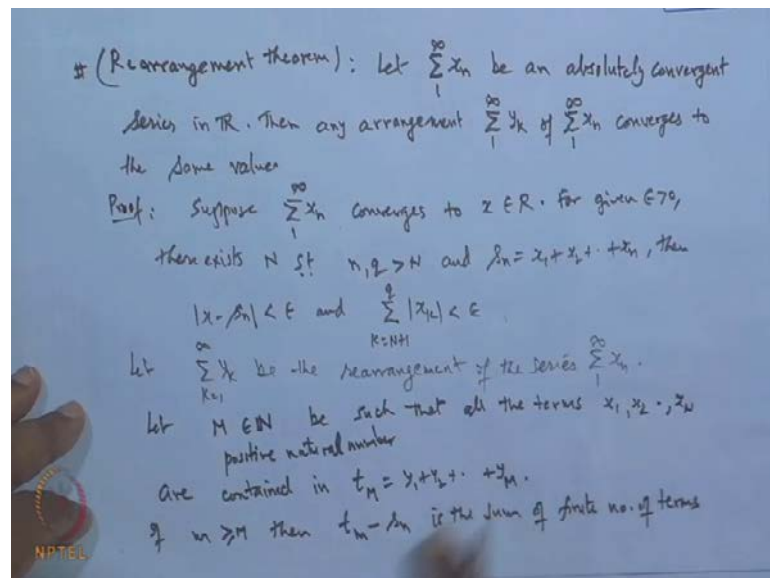 # (Rearrangement theorem): Let ∑_1^∞ x_n be an absolutely convergent
series in R. Then any arrangement ∑_1^∞ y_k of ∑_1^∞ x_n converges to
the same value.
Proof: Suppose ∑_1^∞ x_n converges to x ∈ R. For given ∈>0,
there exists N st n, q > N and s_n = x_1 + x_2 + · + x_n, then
|x - s_n| < ∈ and ∑_{k=N+1}^q |x_k| < ∈.
Let ∑_{k=1}^∞ y_k be the rearrangement of the series ∑_1^∞ x_n.
Let M ∈ N be such that all the terms x_1, x_2 ·, x_N
positive natural number
are contained in t_M = y_1 + y_2 + · + y_M.
If m ≥ M then t_m - s_n is the sum of finite no. of terms
NPTEL